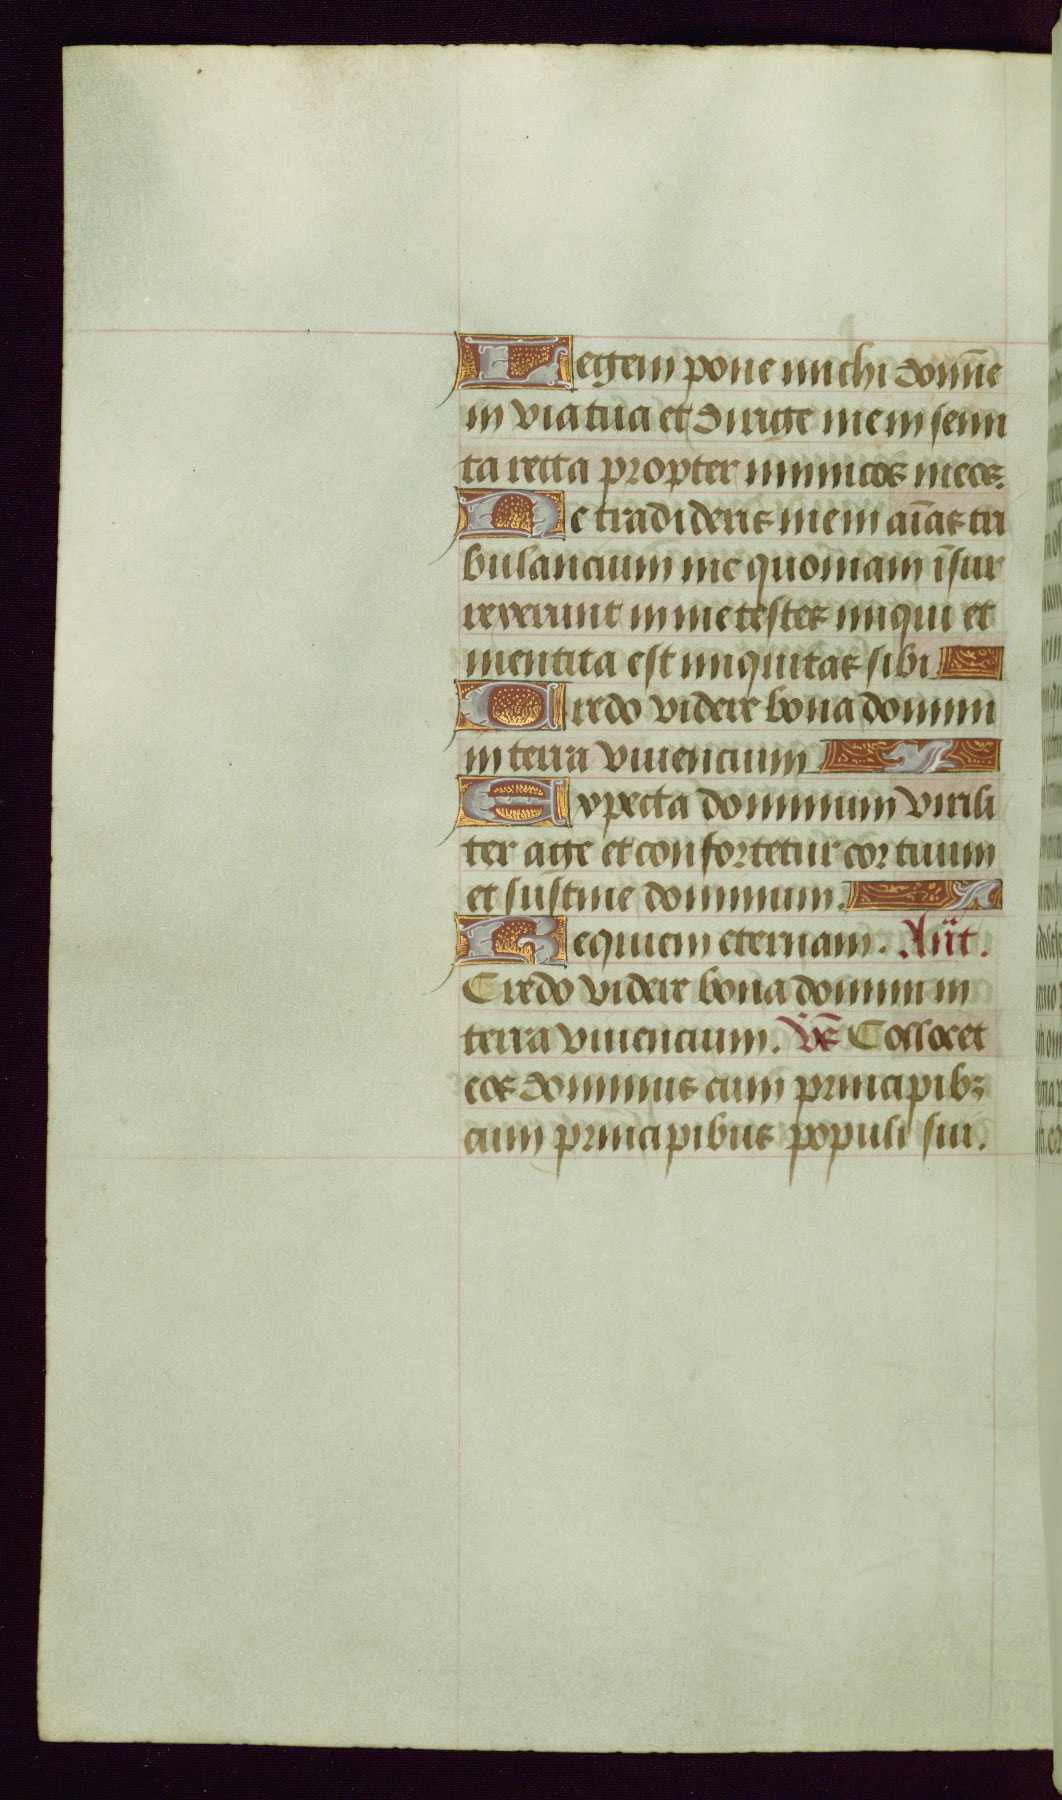 Legem pone michi dom̄e
in via tua et dirige me in semi
ta recta propter inimicos meos.
Ne tradideris me in ai̅as tri
bulancium me quoniam i̅sur
rexerunt in me testes iniqui et
mentita est iniquitas sibi.
Credo videre bona domini
in terra viuencium.
Expecta dominum virili
ter age et confortetur cor tuum
et sustine dominum.
Requiem eternam. An̄t.
Credo videre bona domini in
terra viuencium. V̄s Collocet
eos dominus cum principibꝫ
cum principibus populi sui.